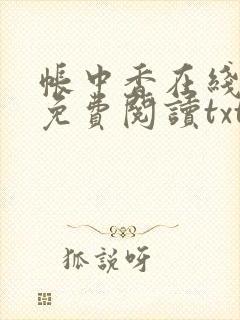 帳中香在綫
免費閱讀txt
狐説呀